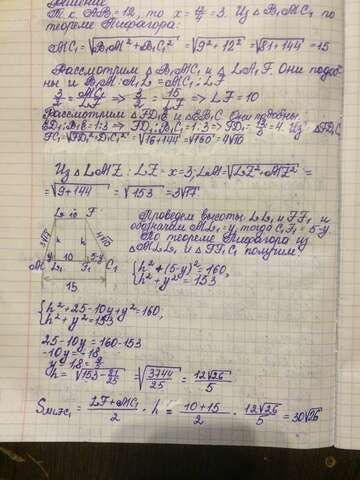 Решение
Т.к. AB = 12, то x = 12/4 = 3. Из △B₁MC₁ по
теореме Пифагора:
MC₁ = √(B₁M² + B₁C₁²) = √(9² + 12²) = √(81 + 144) = 15
Рассмотрим △B₁MC₁ и △LA₁F. Они подоб-
ны и B₁M : A₁L = MC₁ : LF
3/2 = MC₁/LF => 3/2 = 15/LF => LF = 10
Рассмотрим △FD₁E и △B₁C. Они подобны
ED₁ : B₁B = 1:3 => FD₁ : B₁C₁ = 1:3 => FD₁ = 12/3 = 4. Из △FD₁C₁
FC₁ = √(FD₁² + D₁C₁²) = √(16 + 144) = √160 = 4√10
Из △LMZ : LZ = x = 3; LM = √(LZ² + MZ²) =
= √(9 + 144) = √153 = 3√17
L 10 F
3√17 h h 4√10
M y L₁ 10 F₁ 5-y C₁
15
Проведем высоты LL₁ и FF₁ и
обозначим ML₁ = y, тогда C₁F₁ = 5-y
По теореме Пифагора из
△MLL₁ и △FF₁C₁ получим
{ h² + (5-y)² = 160,
{ h² + y² = 153
{ h² + 25 - 10y + y² = 160,
{ h² + y² = 153
25 - 10y = 160 - 153
-10y = -18
y = 18 = 9/5
h = √(153 - 81/25) = √(3744/25) = 12√26/5
Sₘₗ𝒻𝒸₁ = (LF + MC₁)/2 · h = (10 + 15)/2 · 12√26/5 = 30√26